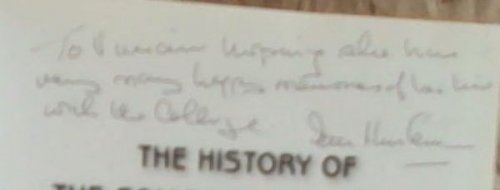 To Vivien hoping she has
very many happy memories of her time
with the College
THE HISTORY OF